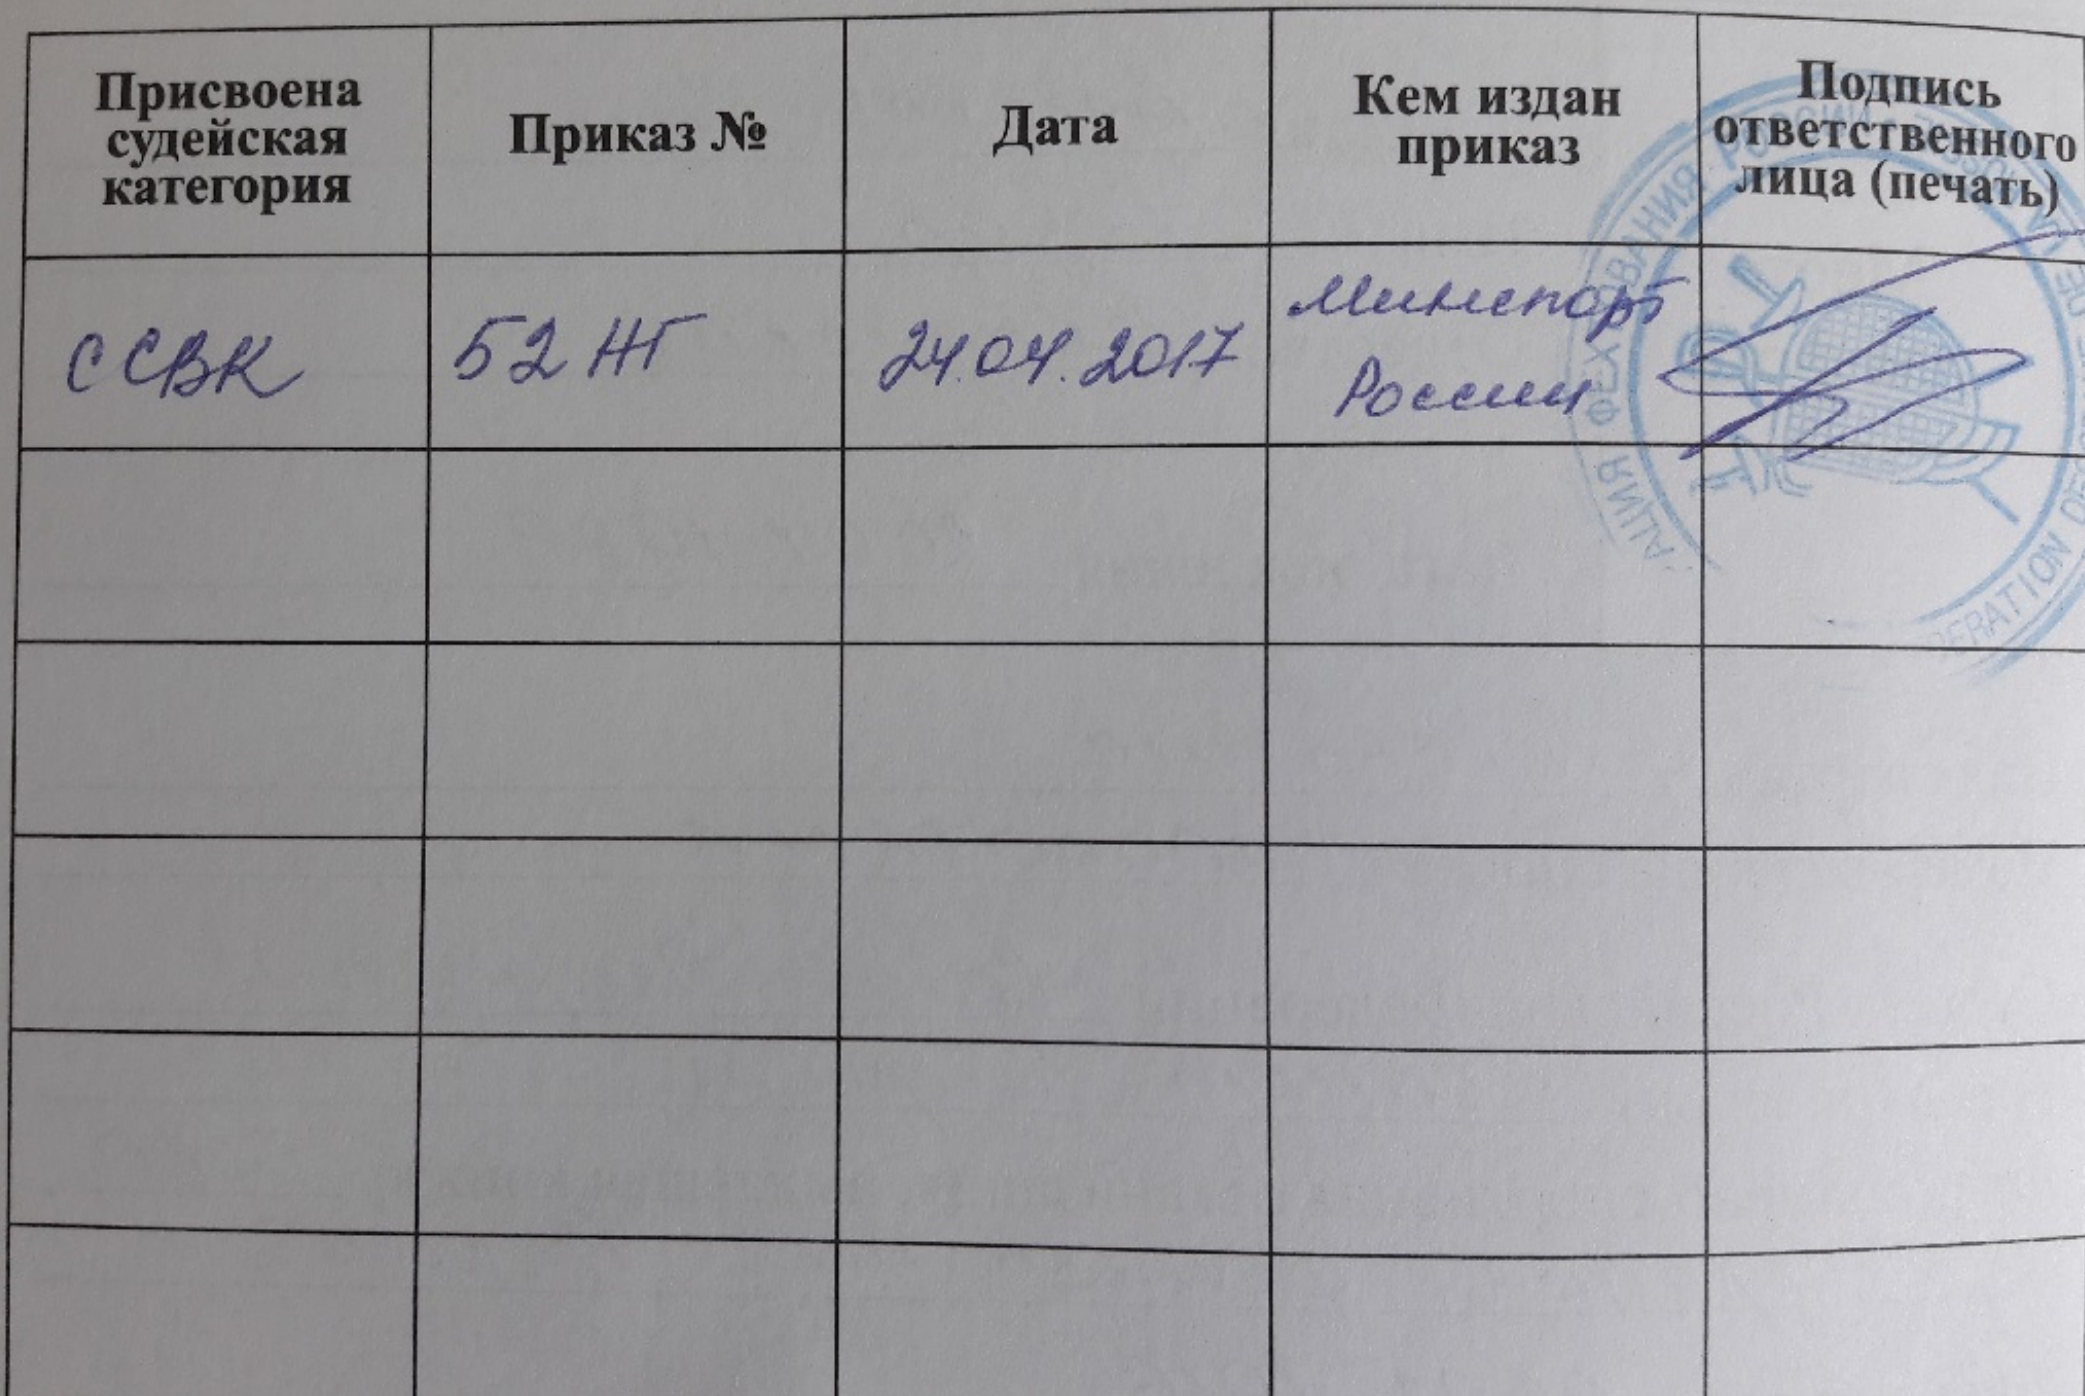 Присвоена
судейская
категория
Приказ №
Дата
Кем издан
приказ
Подпись
ответственного
лица (печать)
ССВК
52 НГ
24.04.2017
Минспорт
России
АЦИЯ ФЕХТОВАНИЯ РО
ERATION DE